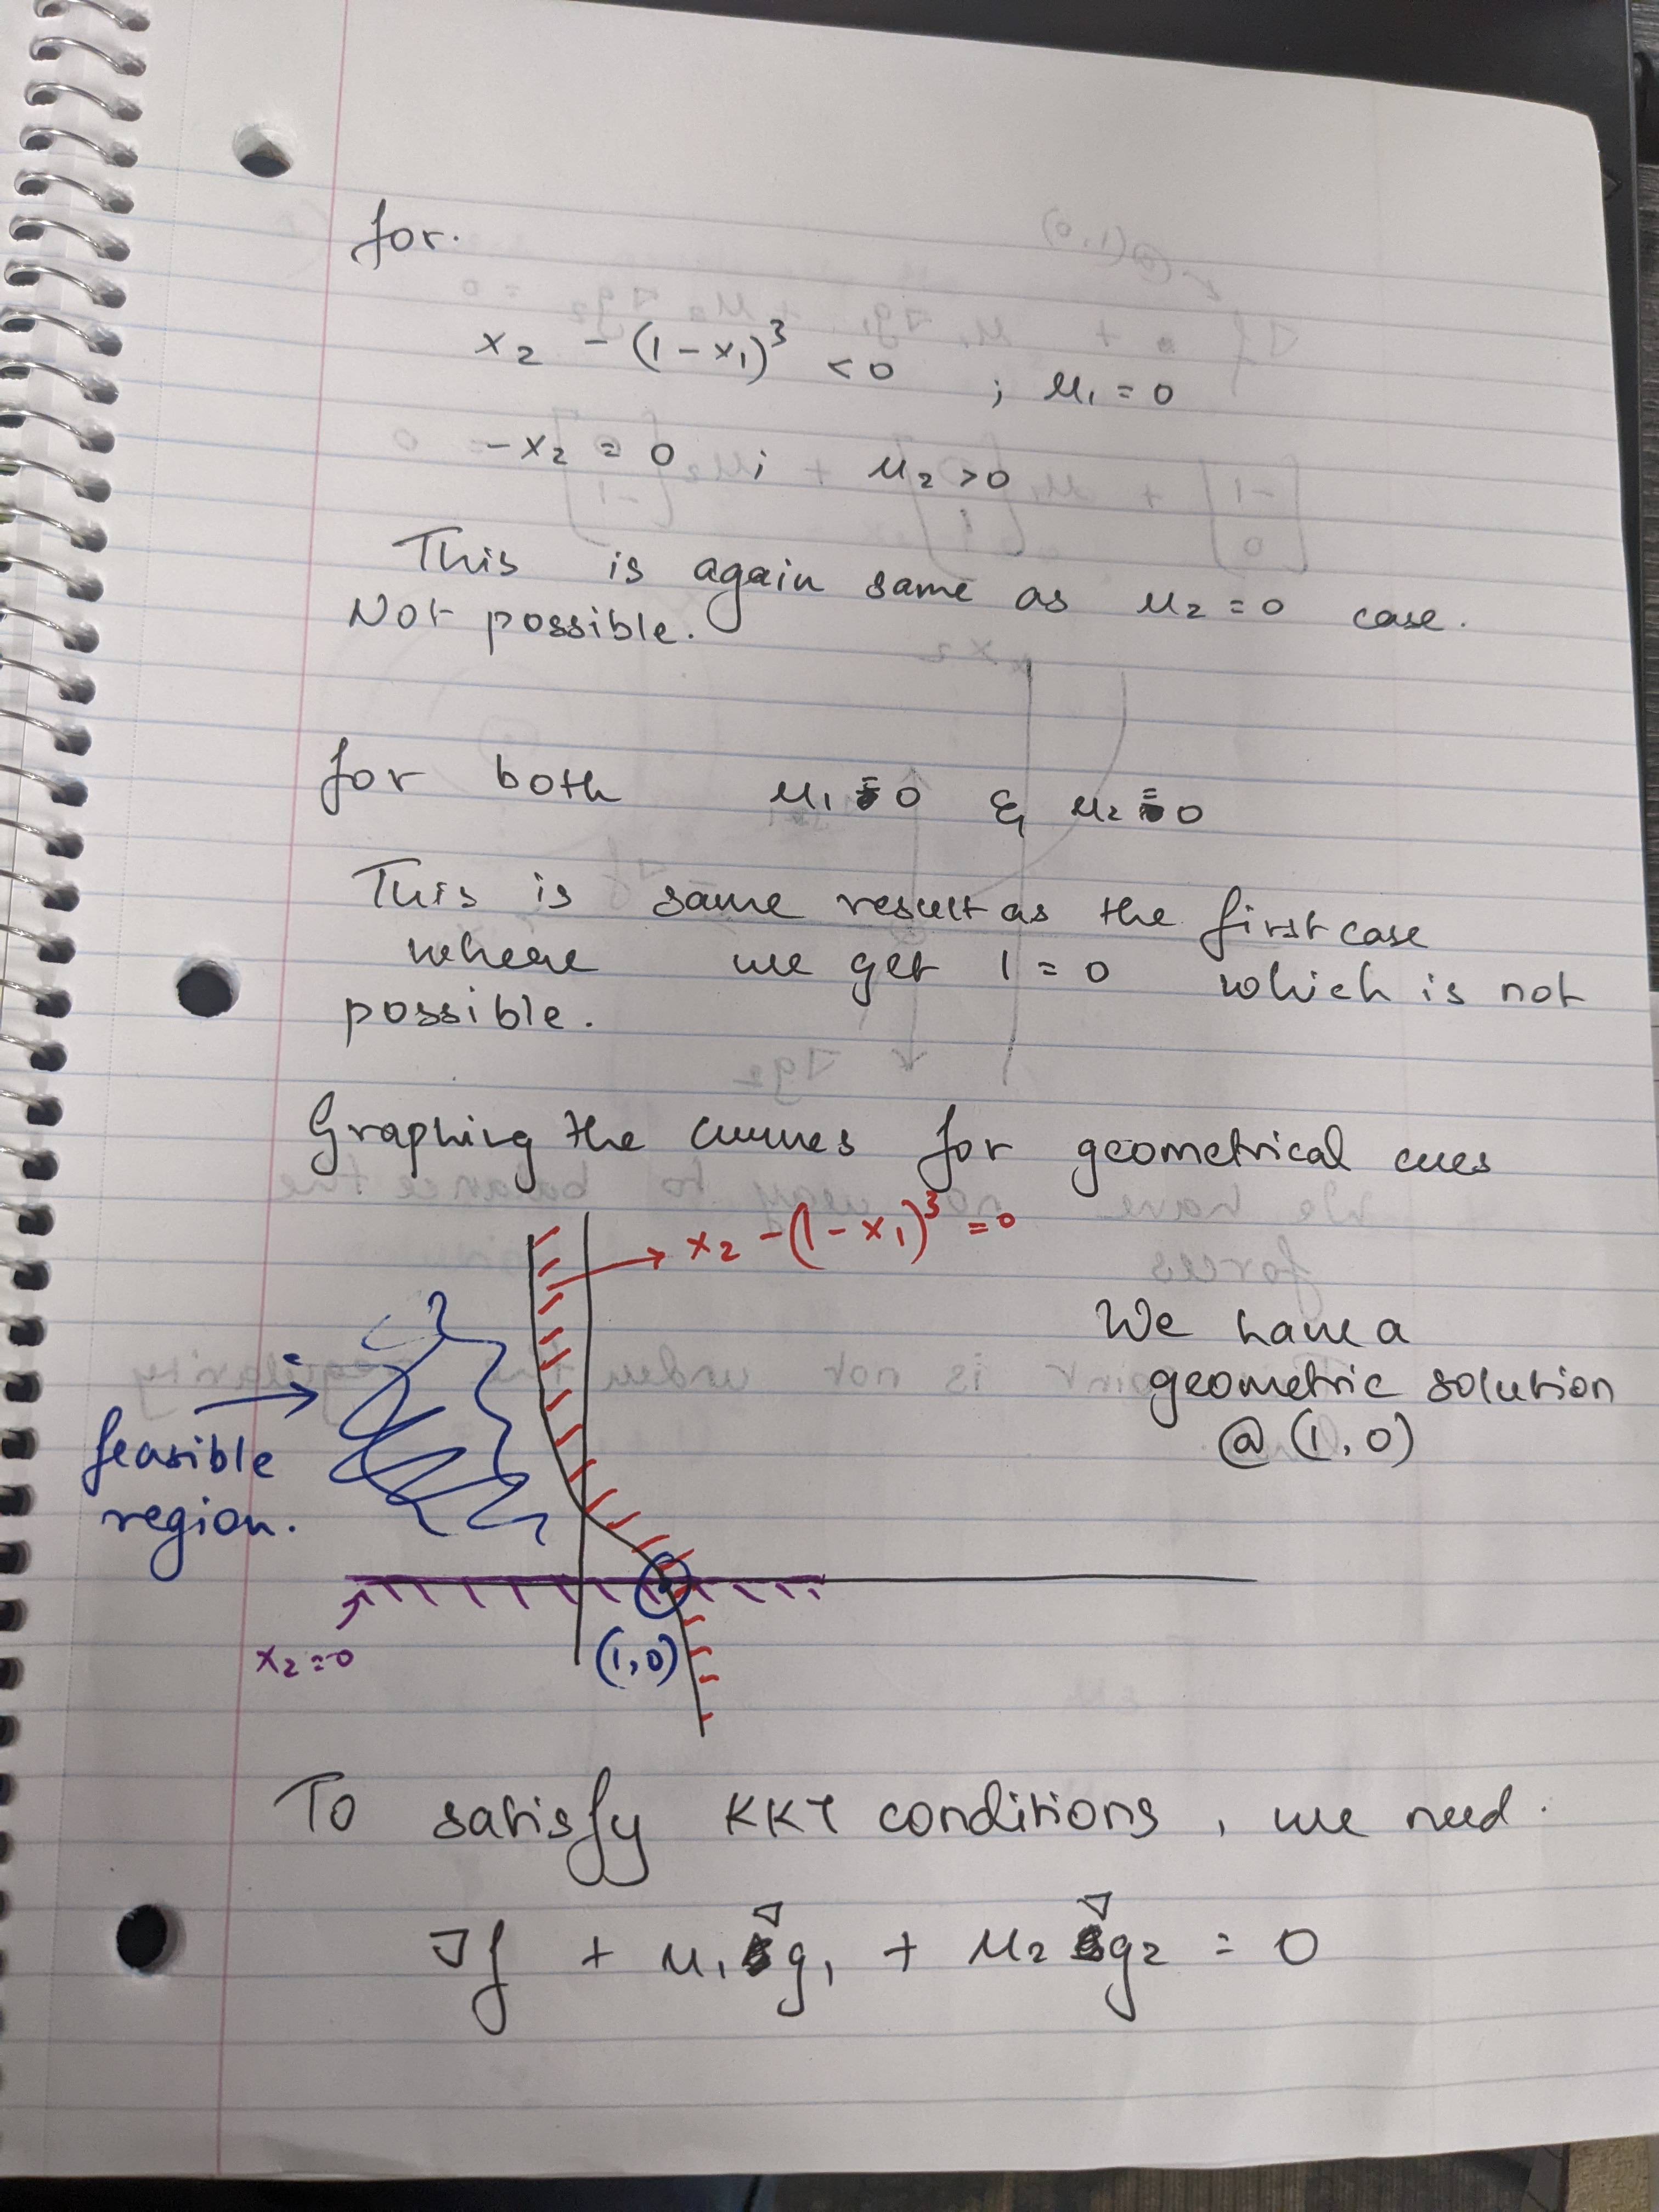 for.
x₂ - (1-x₁)³ < 0 ; μ₁ = 0
-x₂ = 0 ; μ₂ > 0
This is again same as μ₂ = 0 case.
Not possible.
for both μ₁ = 0 & μ₂ = 0
This is same result as the first case
where we get 1 = 0 which is not
possible.
Graphing the curves for geometrical cues
x₂ - (1-x₁)³ = 0
We have a
geometric solution
@ (1,0)
feasible
region.
x₂ = 0
(1,0)
To satisfy KKT conditions, we need.
∇f + μ₁ ∇g₁ + μ₂ ∇g₂ = 0